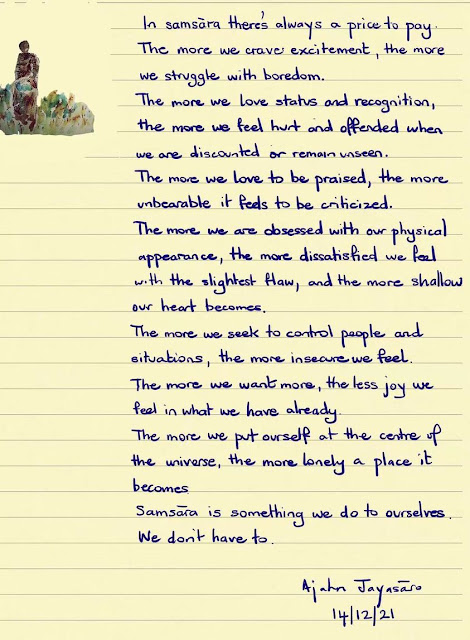 In samsāra there's always a price to pay.
The more we crave excitement, the more
we struggle with boredom.
The more we love status and recognition,
the more we feel hurt and offended when
we are discounted or remain unseen.
The more we love to be praised, the more
unbearable it feels to be criticized.
The more we are obsessed with our physical
appearance, the more dissatisfied we feel
with the slightest flaw, and the more shallow
our heart becomes.
The more we seek to control people and
situations, the more insecure we feel.
The more we want more, the less joy we
feel in what we have already.
The more we put ourself at the centre of
the universe, the more lonely a place it
becomes
Samsāra is something we do to ourselves.
We don't have to.
Ajahn Jayasāro
14/12/21